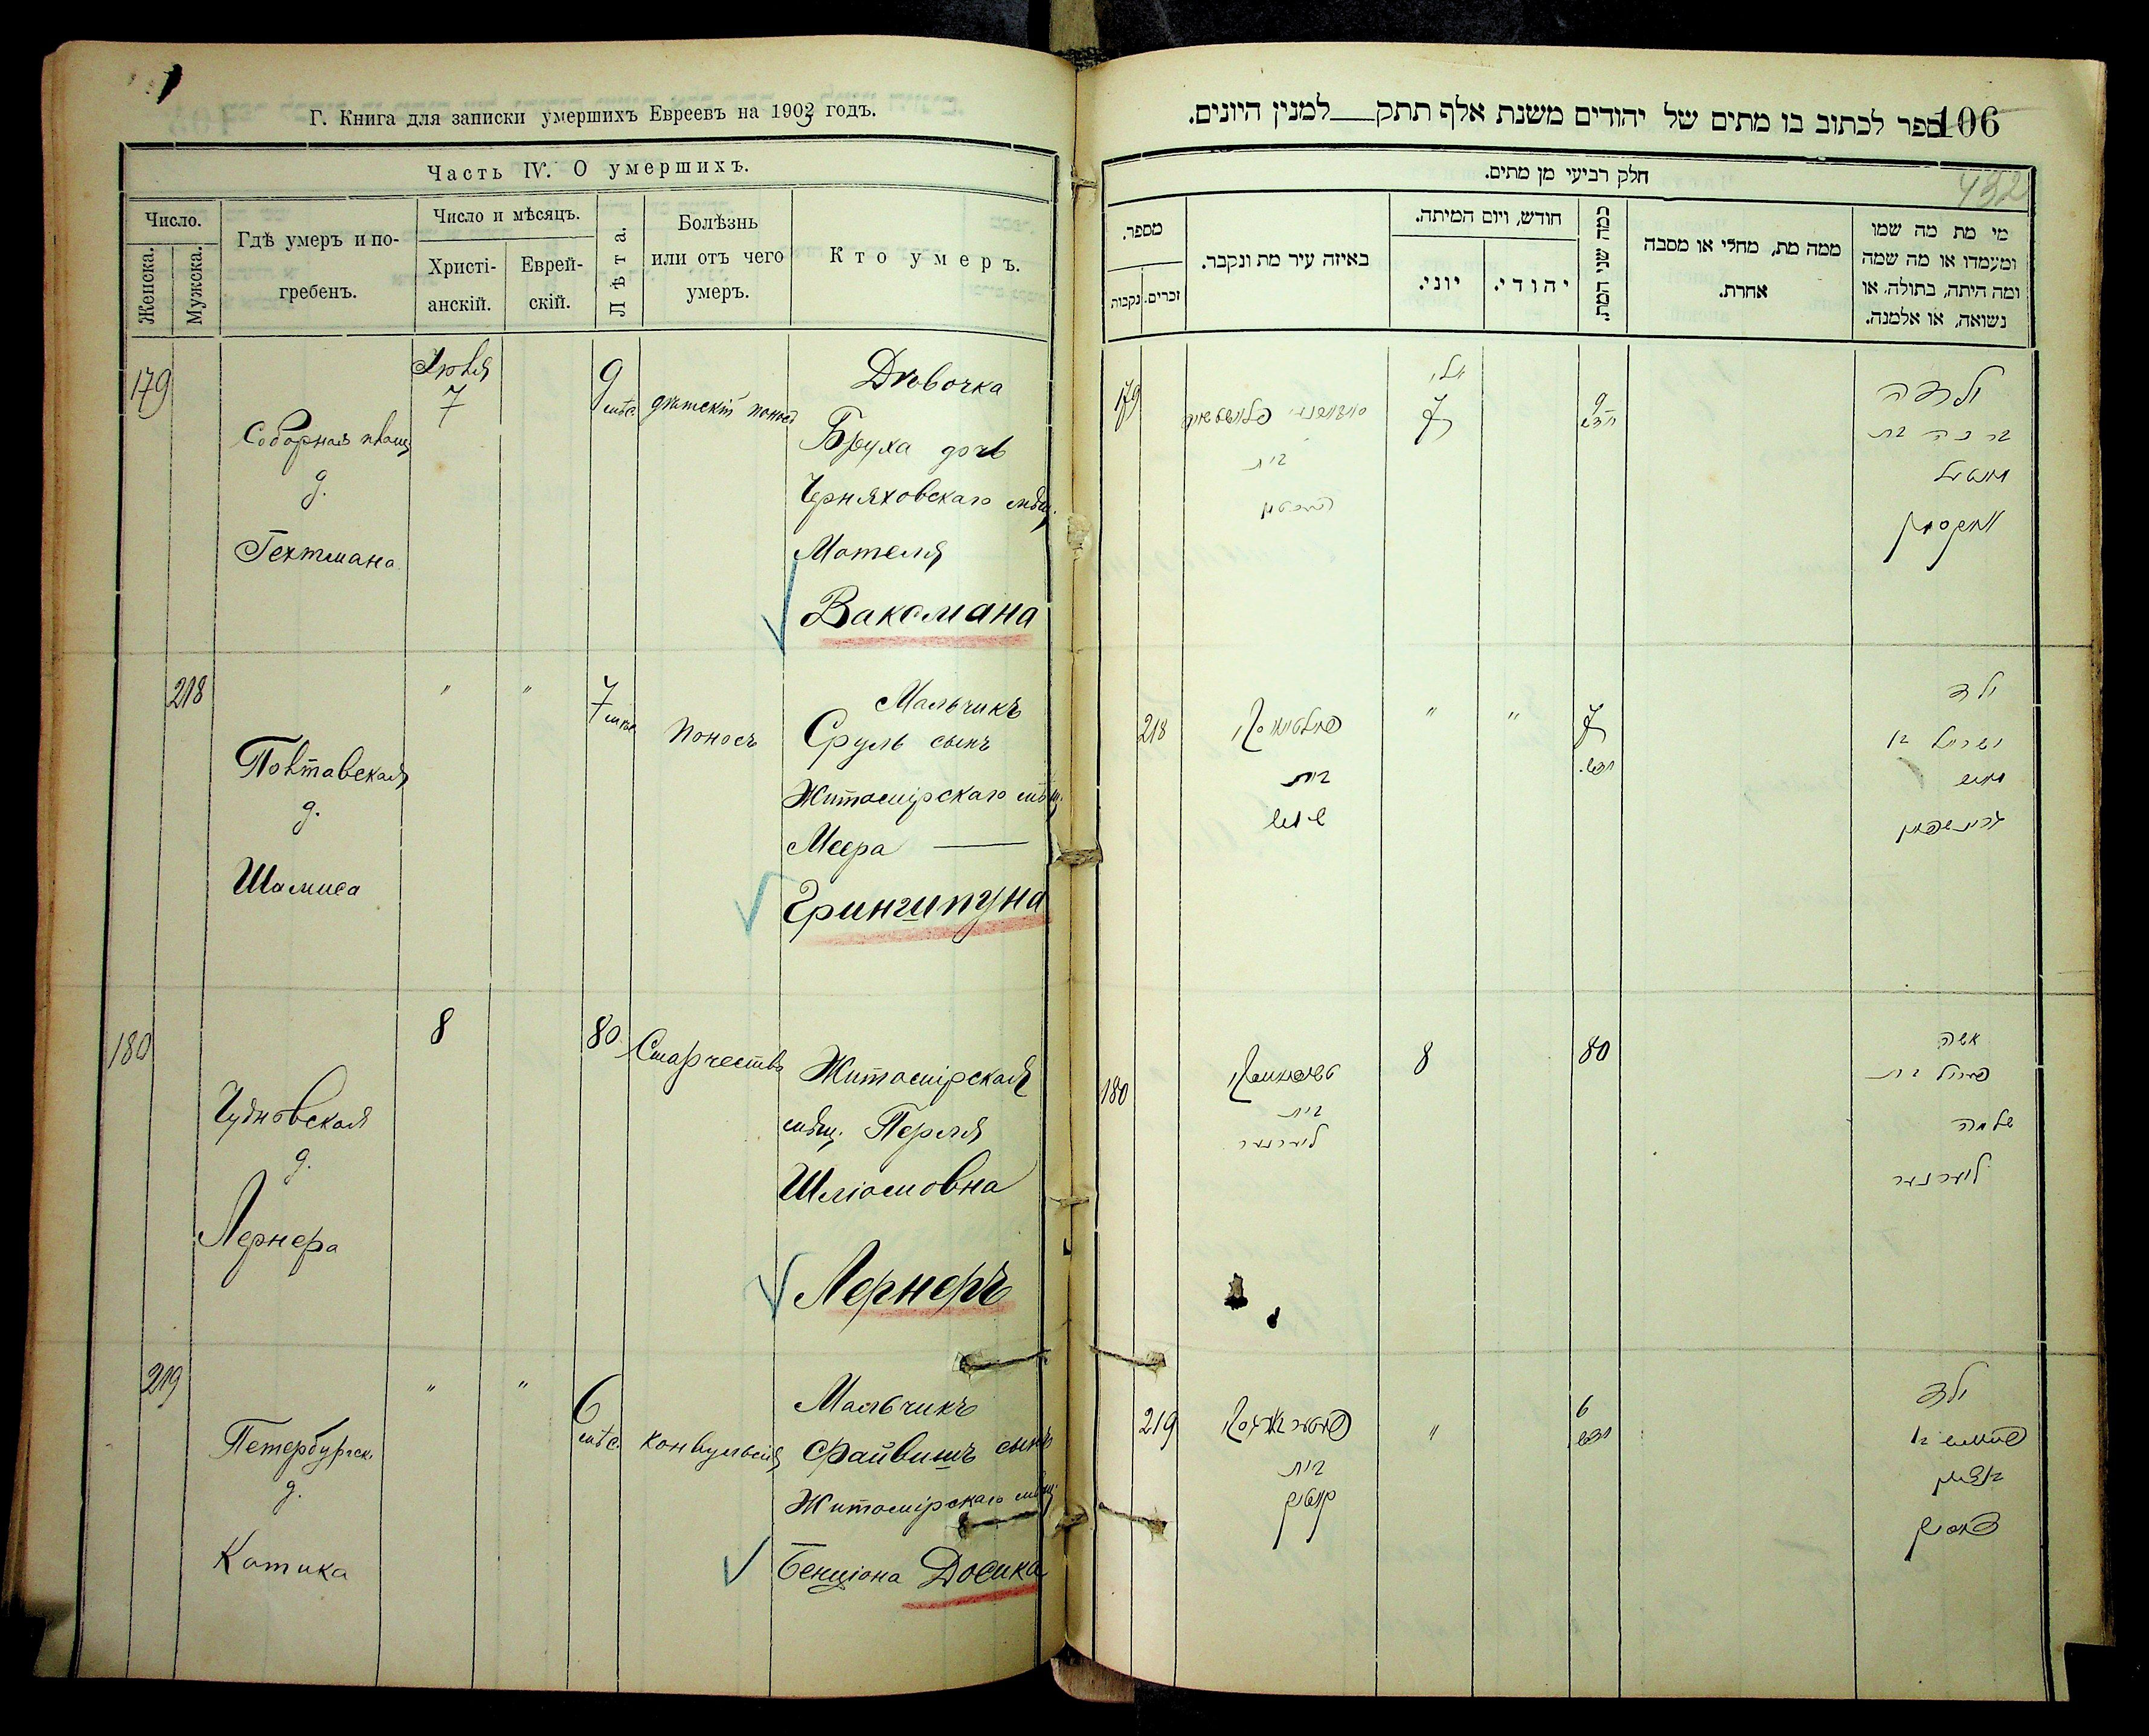 Г. Книга для записки умершихъ Евреевъ на 1903 годъ.
Часть IV. О умершихъ.
Число.
Женска.
Мужска.
Гдѣ умеръ и по-
гребенъ.
Число и мѣсяцъ.
Христі-
анскій.
Еврей-
скій.
Лѣта.
Болѣзнь
или отъ чего
умеръ.
Кто умеръ.
179
Соборная площ
д.
Гехтмана
7
9
мѣс.
дѣтскій поносъ
Дѣвочка
Бруха дочь
Черняховскаго мѣщ.
Мотеля
Ваксмана
218
Полтавская
д.
Шамиса
"
"
7
поносъ
Мальчикъ
Сруль сынъ
Житомірскаго мѣщ.
Меера
Гриншпуна
180
Чудновская
д.
Лернера
8
80
Старчество
Житомірская
мѣщ. Перля
Шліомовна
Лернеръ
219
Петербургск.
д.
Котика
"
"
6
мѣс.
конвульсія
Мальчикъ
Файвишъ сынъ
Житомірскаго мѣщ.
Бенціона Досика
ספר לכתוב בו מתים של יהודים משנת אלף תתק__למנין היונים.
106
492
חלק רביעי מן מתים.
מספר.
נקבות
זכרים.
באיזה עיר מת ונקבר.
חודש, ויום המיתה.
יוני.
יהודי.
כמה שני המת.
ממה מת, מחלי או מסבה
אחרת.
מי מת מה שמו
ומעמדו או מה שמה
ומה היתה, בתולה, או
נשואה, או אלמנה.
179
בית
יולי
7
9
חדש
ילדה
ברכה בת
מוטיל
וואקסמאן
218
בית
שאמיס
"
"
7
חדש.
ילד
ישראל בן
מאיר
גרינשפאן
180
בית
לערנער
8
80
אשה
פערל בת
שלמה
לערנער
219
בית
קאטיק
"
6
חדש
ילד
פייוויש בן
בנציון
דאסיק